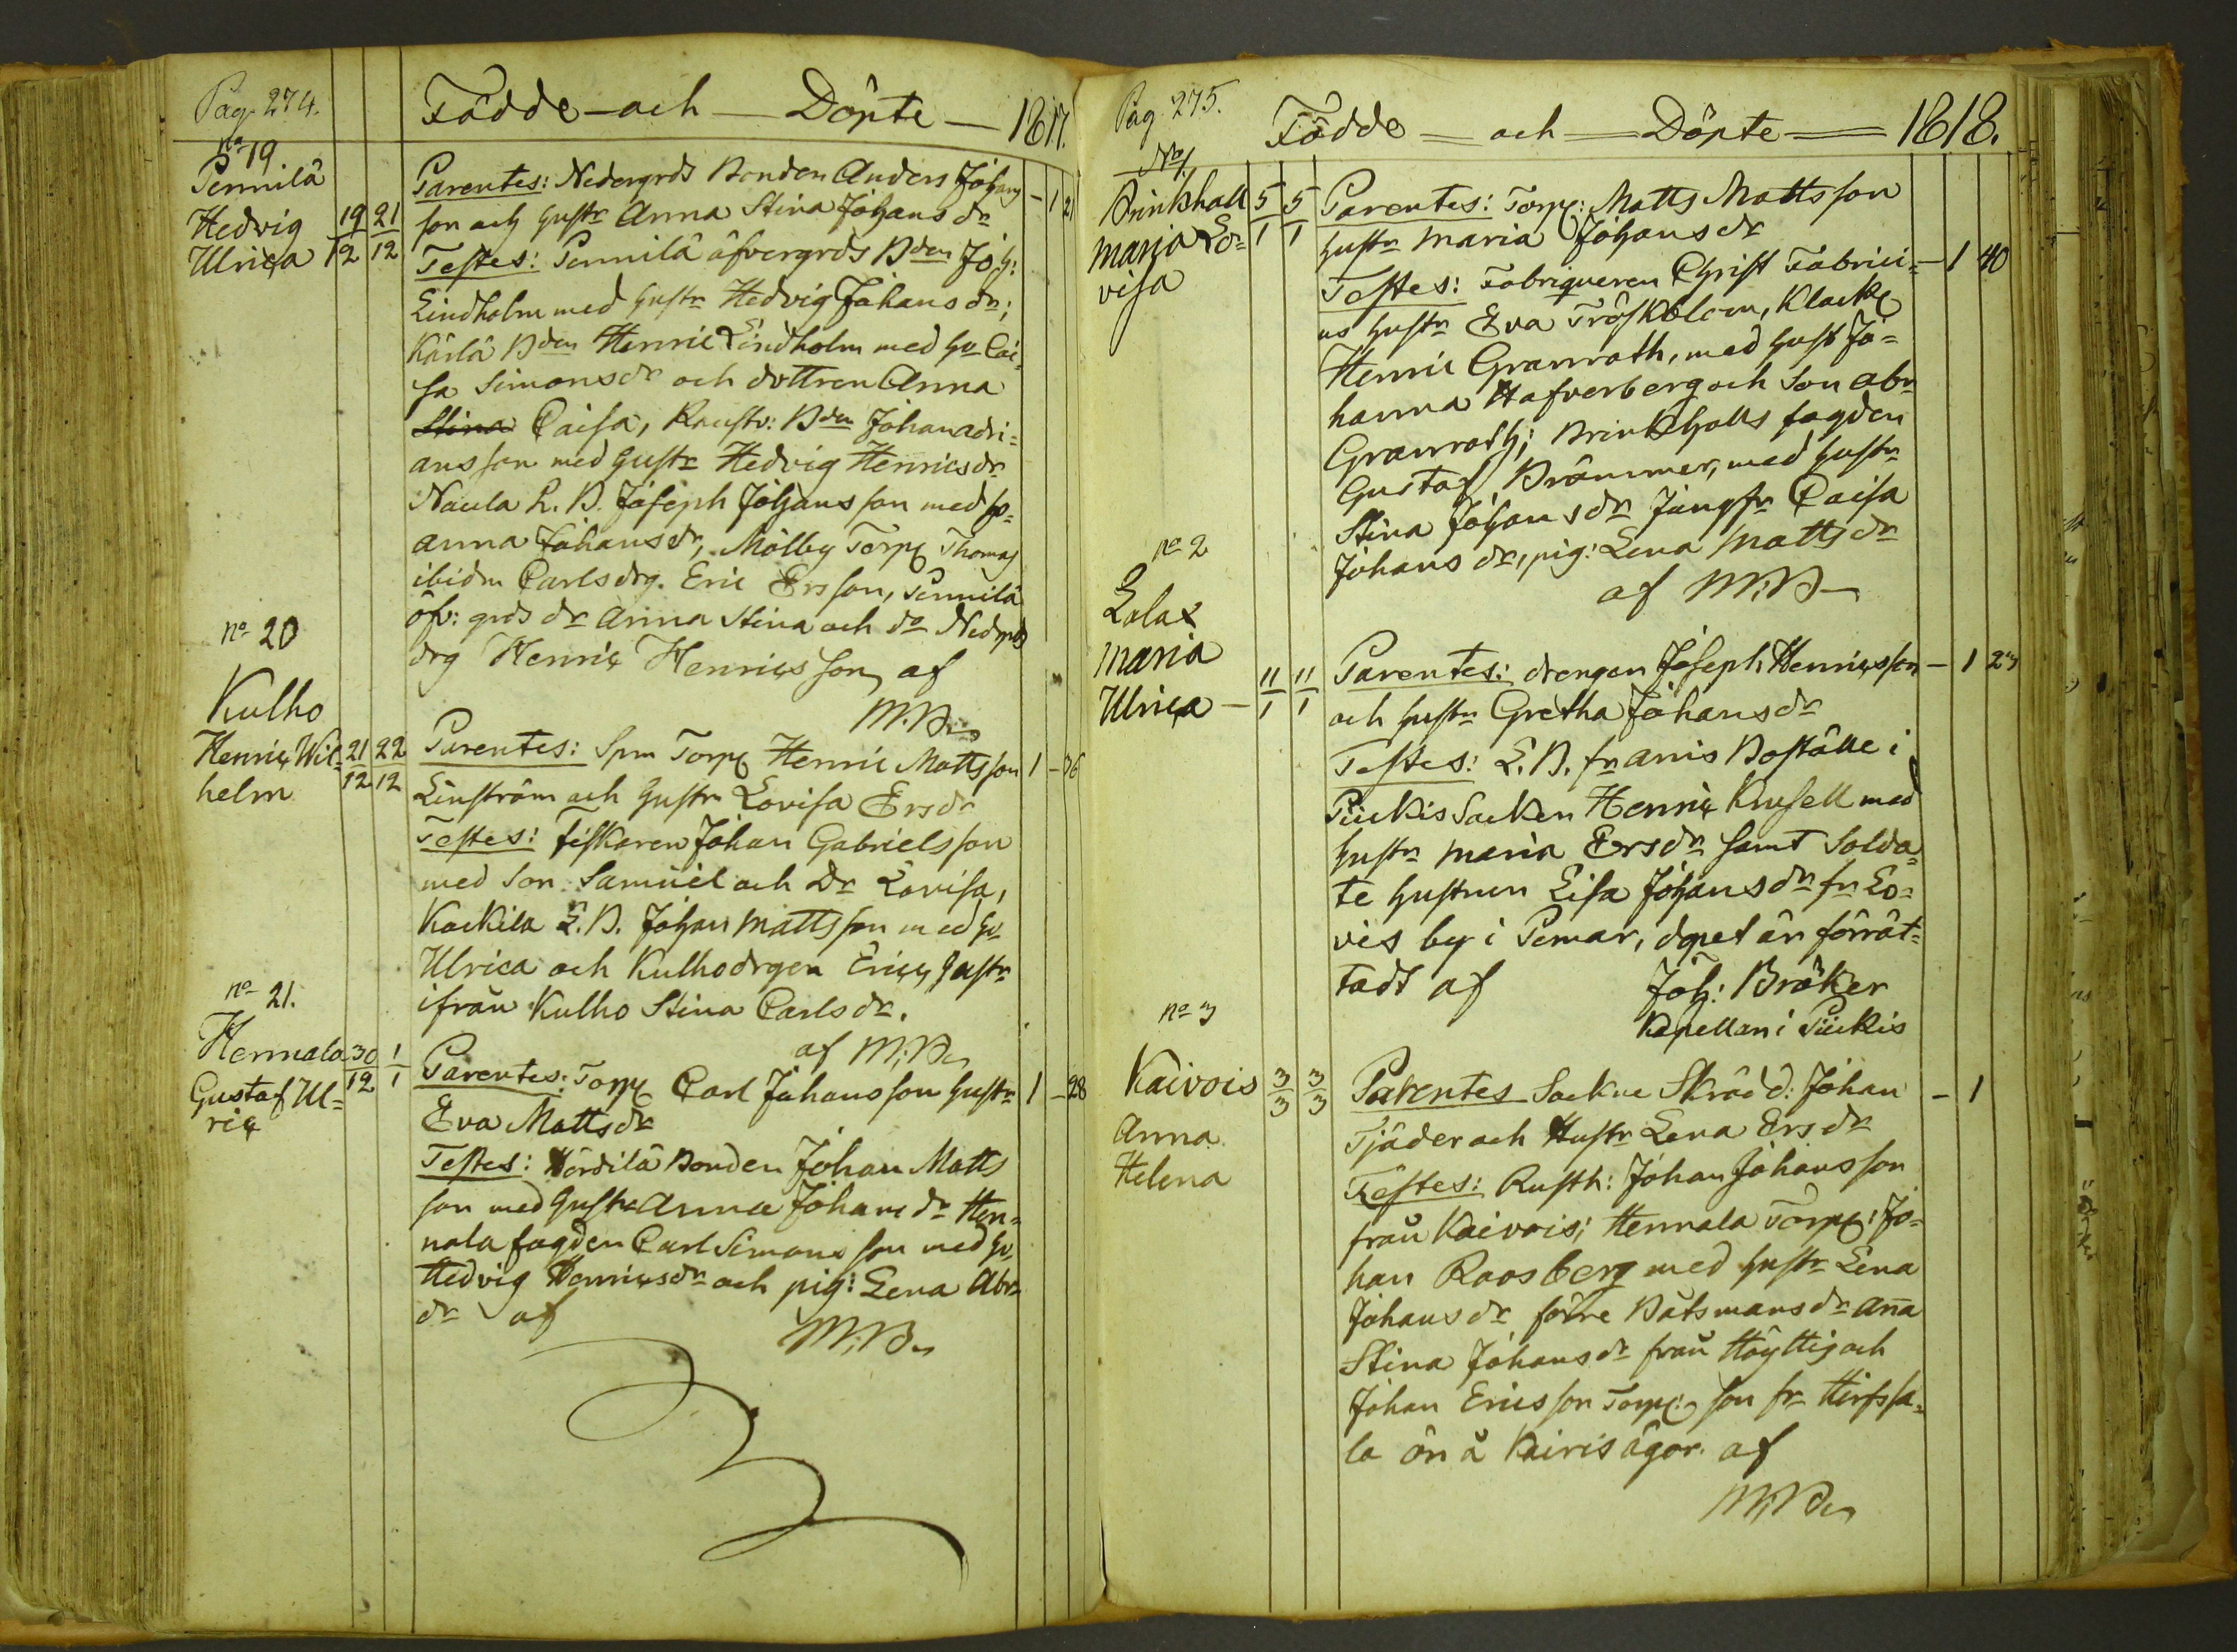 Pag. 274.
Födde - och - Döpte - 1817.
no 19.
Pennilä
Hedvig 19/12 21/12
Ulrica
Parentes: Nedergrds Bonden Anders Johans - 1 21
son och hustr Anna Stina Johans dr
Testes: Pennilä öfvergrds Bden Joh:
Lindholm med hustr Hedvig Johans dr;
Kärlä Bden Henric Lindholm med hu Cai
sa Simons dr och dottren Anna
Stina Caisa, Raustv: Bden Johan Adri=
ansson med hustr Hedvig Henrics dr
Naula L. B. Joseph Johansson med hu
Anna Johans dr, Mölby Torp Thomas
ibidm Carls drg. Eric Ersson, Pennilä
öfv: grds dr Anna Stina och do Nedgrds
drg Henric Henricsson af
M. B.
no 20
Kulho
Henric Wil= 21/12 22/12
helm
Parentes: Spm Torp Henric Mattsson 1 - 36
Linström och hustr Lovisa Ers dr
Testes: fiskaren Johan Gabrielsson
med Son Samuel och Dr Lovisa,
Kackila L. B. Johan Mattsson med hu
Ulrica och Kulho drgen Eric, hustr
ifrån Kulho Stina Carls dr.
af M. B.
no 21.
Hennala 30/12 1/1
Gustaf Ul=
ric
Parentes: Torp Carl Johansson hustr 1 - 28
Eva Matts dr
Testes: Hördilä Bonden Johan Matts
son med hustr Anna Johans dr Hen=
nala fogden Carl Simonsson med hu
Hedvig Henrics dr och pig: Lena Abr
dr af
M. B.
Pag 275.
Födde = och = Döpte = 1818.
No 1.
Brinkhall 5/1 5/1
Maria Lo=
visa
Parentes: Torp: Matts Mattsson
hustr Maria Johans dr
Testes: Fabriqueren Christ Fabrici= - 1 40
us hustr Eva Tröskblom, Klock
Henric Granroth, med hust Jo=
hanna Hafverberg och Son Abr
Granroth; Brinkhalls fogden
Gustaf Brännner, med hustr
Stina Johans dr Jungfr Caisa
Johans dr, pig: Lena Matts dr
af M. B.
no 2
Lalax
Maria
Ulrica - 11/1 11/1
Parentes: drengen Joseph Henricsson - 1 23
och hustr Gretha Johans dr
Testes: L. B. fr anis Boställe i
Piickis Socken Henric Krusell med
hustr Maria Ers dr samt Solda=
te hustrun Lisa Johans dr fr Lo=
vis by i Pemar, dopet är förrät=
tadt af Joh: Bröker
Kapellan i Piickis
no 3
Kaivois 3/3 3/3
Anna
Helena
Parentes Sockne Skrädd: Johan - 1
Tjäder och Hustr Lena Ers dr
Testes: Rusth: Johan Johansson
från Kaivois; Hennala Torp: Jo=
han Roosberg med hustr Lena
Johans dr förre Båtsmans dr Anna
Stina Johans dr från Höyttis och
Johan Ericsson Torp: son fr Hirfssa=
lo ön å Kairis ägor. af
M. B.